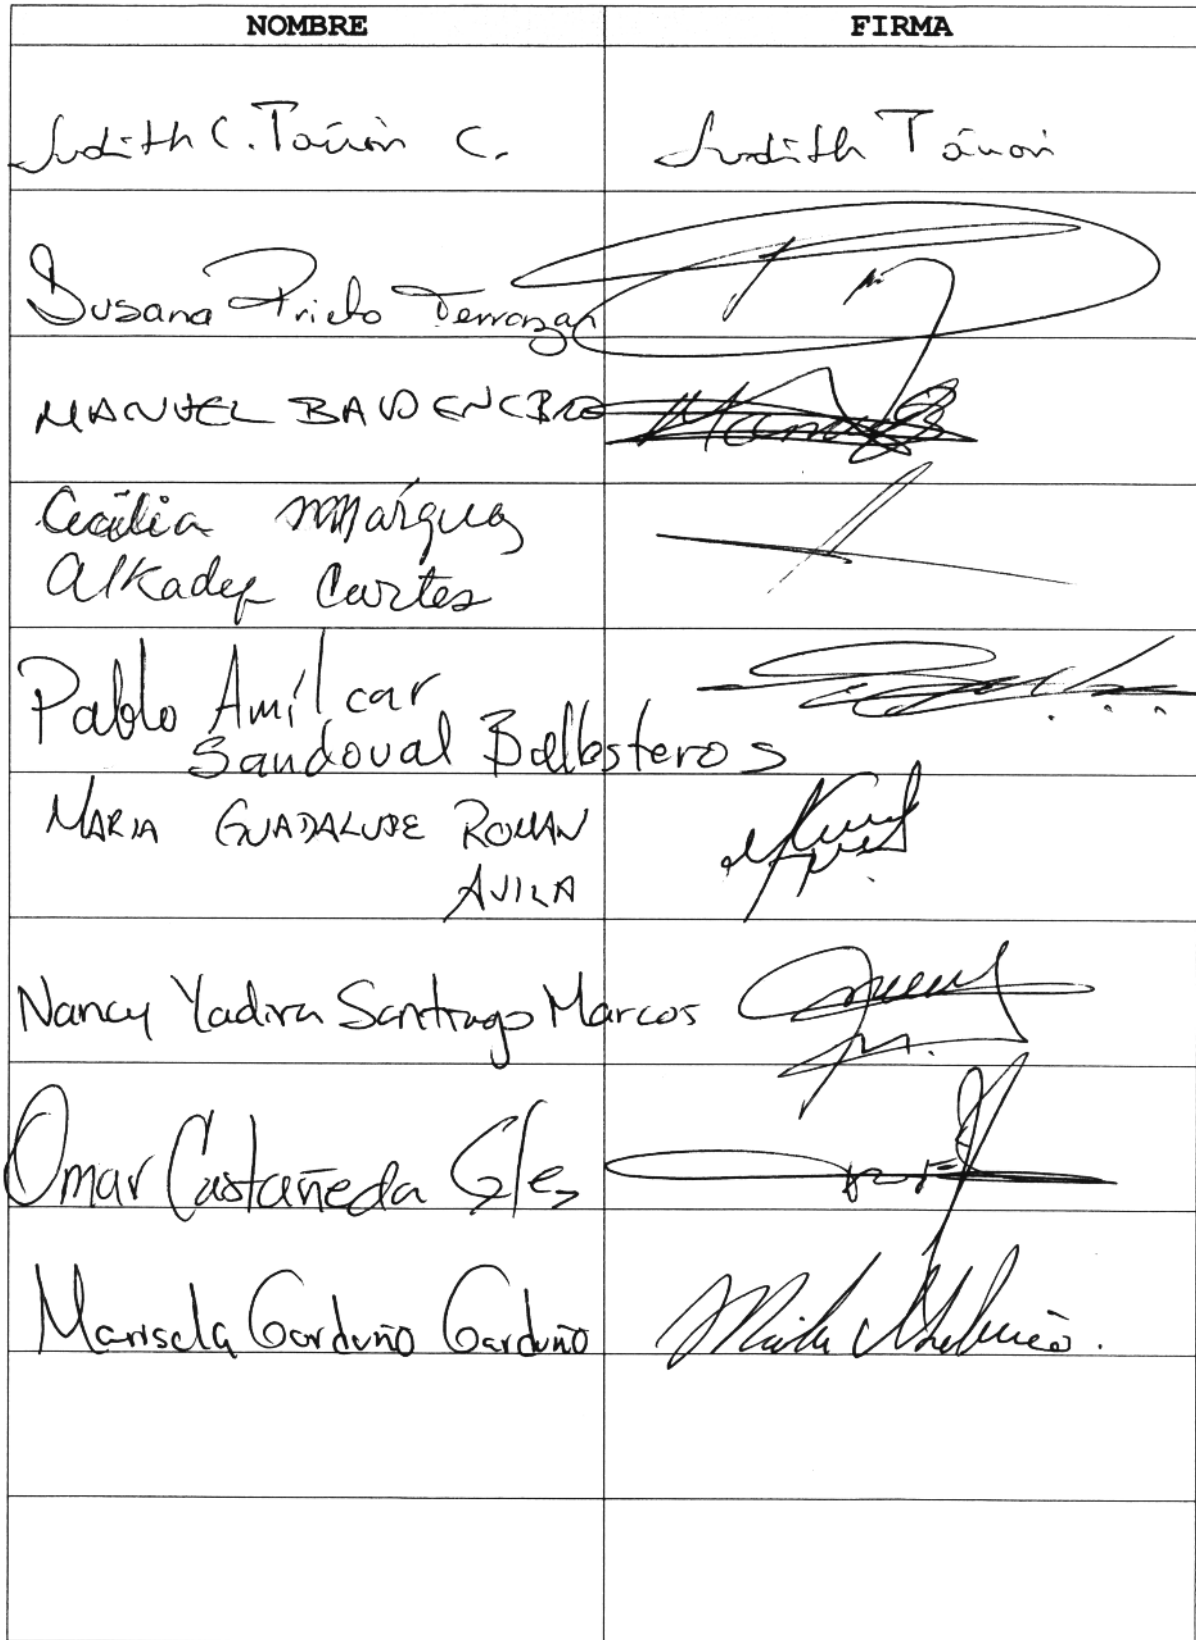 NOMBRE FIRMA
Judith C. Tánori C. Judith Tánori
Susana Prieto Terrazas
MANUEL BALDENEBRO
Cecilia Márquez
Alkadef Cortes
Pablo Amílcar
Sandoval Ballesteros
MARIA GUADALUPE ROMAN
AVILA
Nancy Yadira Santiago Marcos
Omar Castañeda Glez
Marisela Garduño Garduño